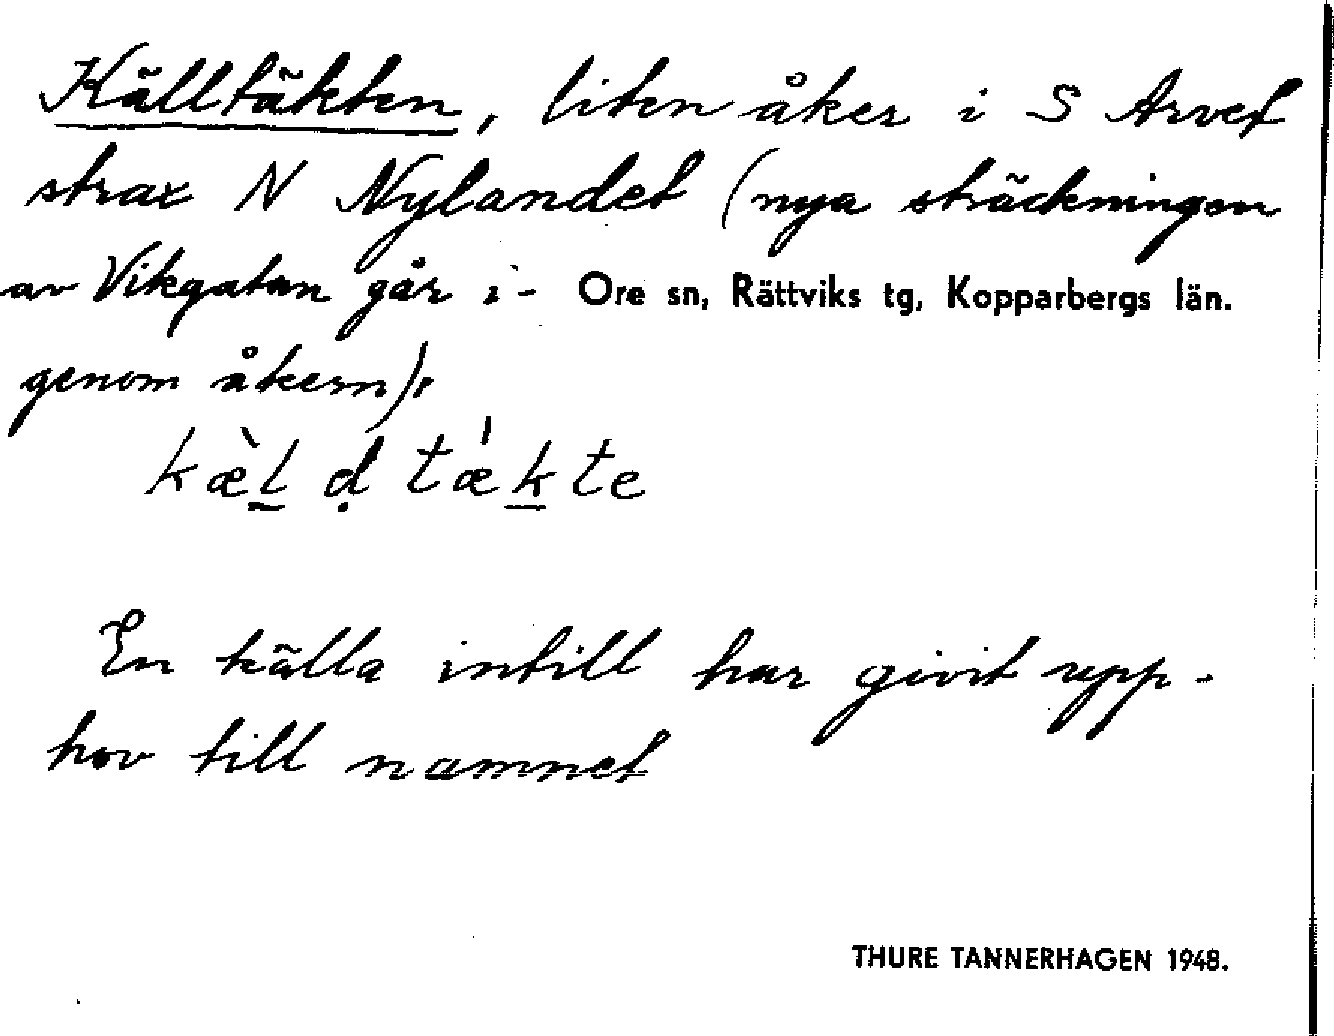 Källtäkten, liten åker i S Arvet
strax N Nylandet (nya sträckningen
av Vikgatan går i- Ore sn, Rättviks tg, Kopparbergs län.
genom åkern):
kæ̀l̲ ḍ tæ̍k̲te
En källa intill har givit upp-
hov till namnet
THURE TANNERHAGEN 1948.